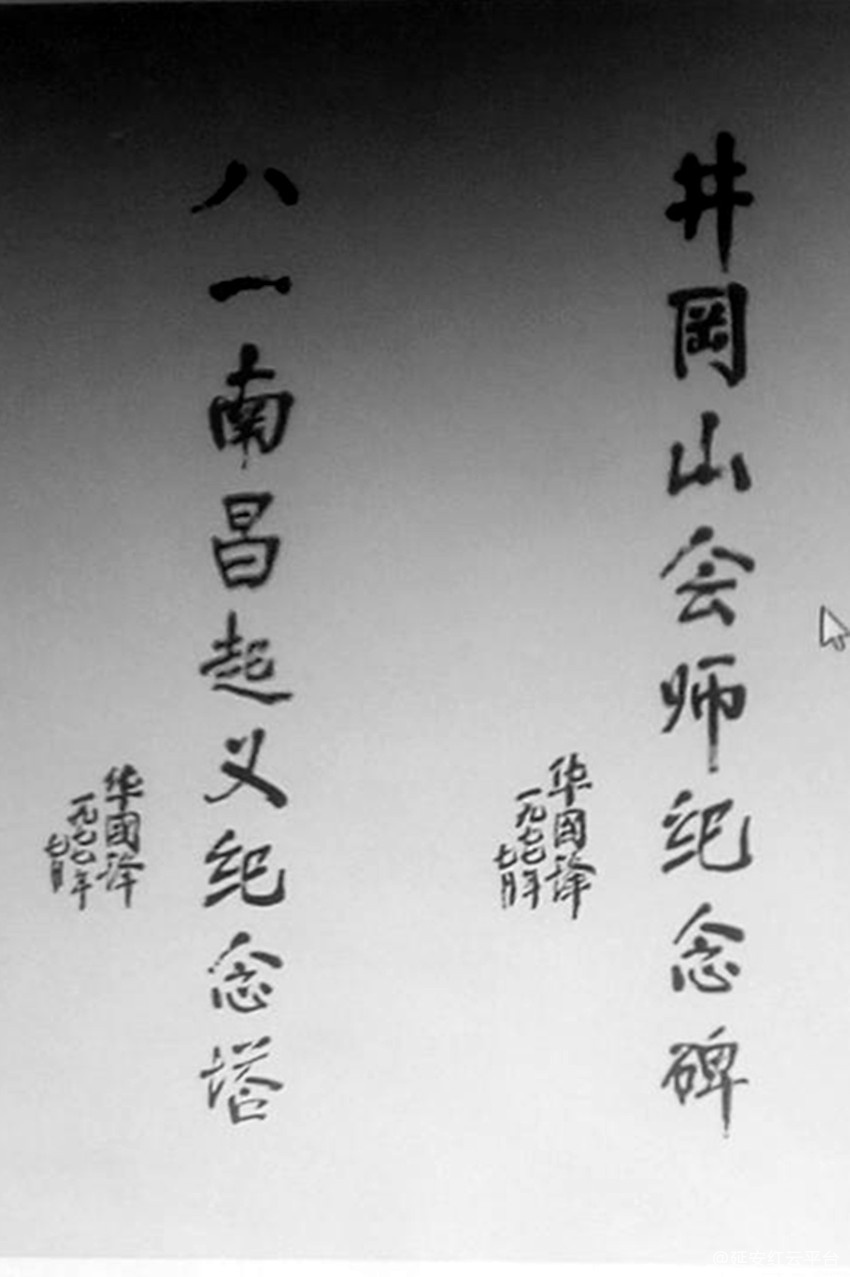 井岡山会师纪念碑
华國锋
一九七七年
七月
八一南昌起义纪念塔
华國锋
一九七七年
七月